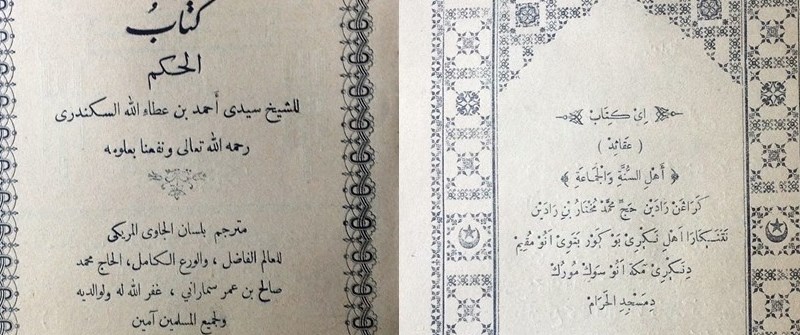 كتابُ
الحكم
للشيخ سيدى أحمد بن عطاء الله السكندرى
رحمه الله تعالى ونفعنا بعلومه
مترجم بلسان الجاوى المريكى
للعالم الفاضل ، والورع الكامل، الحاج محمد
صالح بن عمر سمارانى ، غفر الله له ولوالديه
ولجميع المسلمين آمين
اِىْ كِتَابْ
( عَقَائِدْ )
﴿ أَهْلِ السُّنَّةِ وَالْجَمَاعَةِ ﴾
كَرَاڠَنْ رَادَيْن حَجِّ مُحَمَّدْ مُخْتَارْ بِنْ رَادَيْن
نَتَنَكَارَا اَهْلِ نَكْرِىْ بَوْكَوْر بَتَوِىْ اَنُوْ مُقِيمْ
دِنَكْرِىْ مَكَّةْ اَنُوْ سَوْكْ مُوْرُكْ
دِمَسْجِدِ الْحَرَامْ